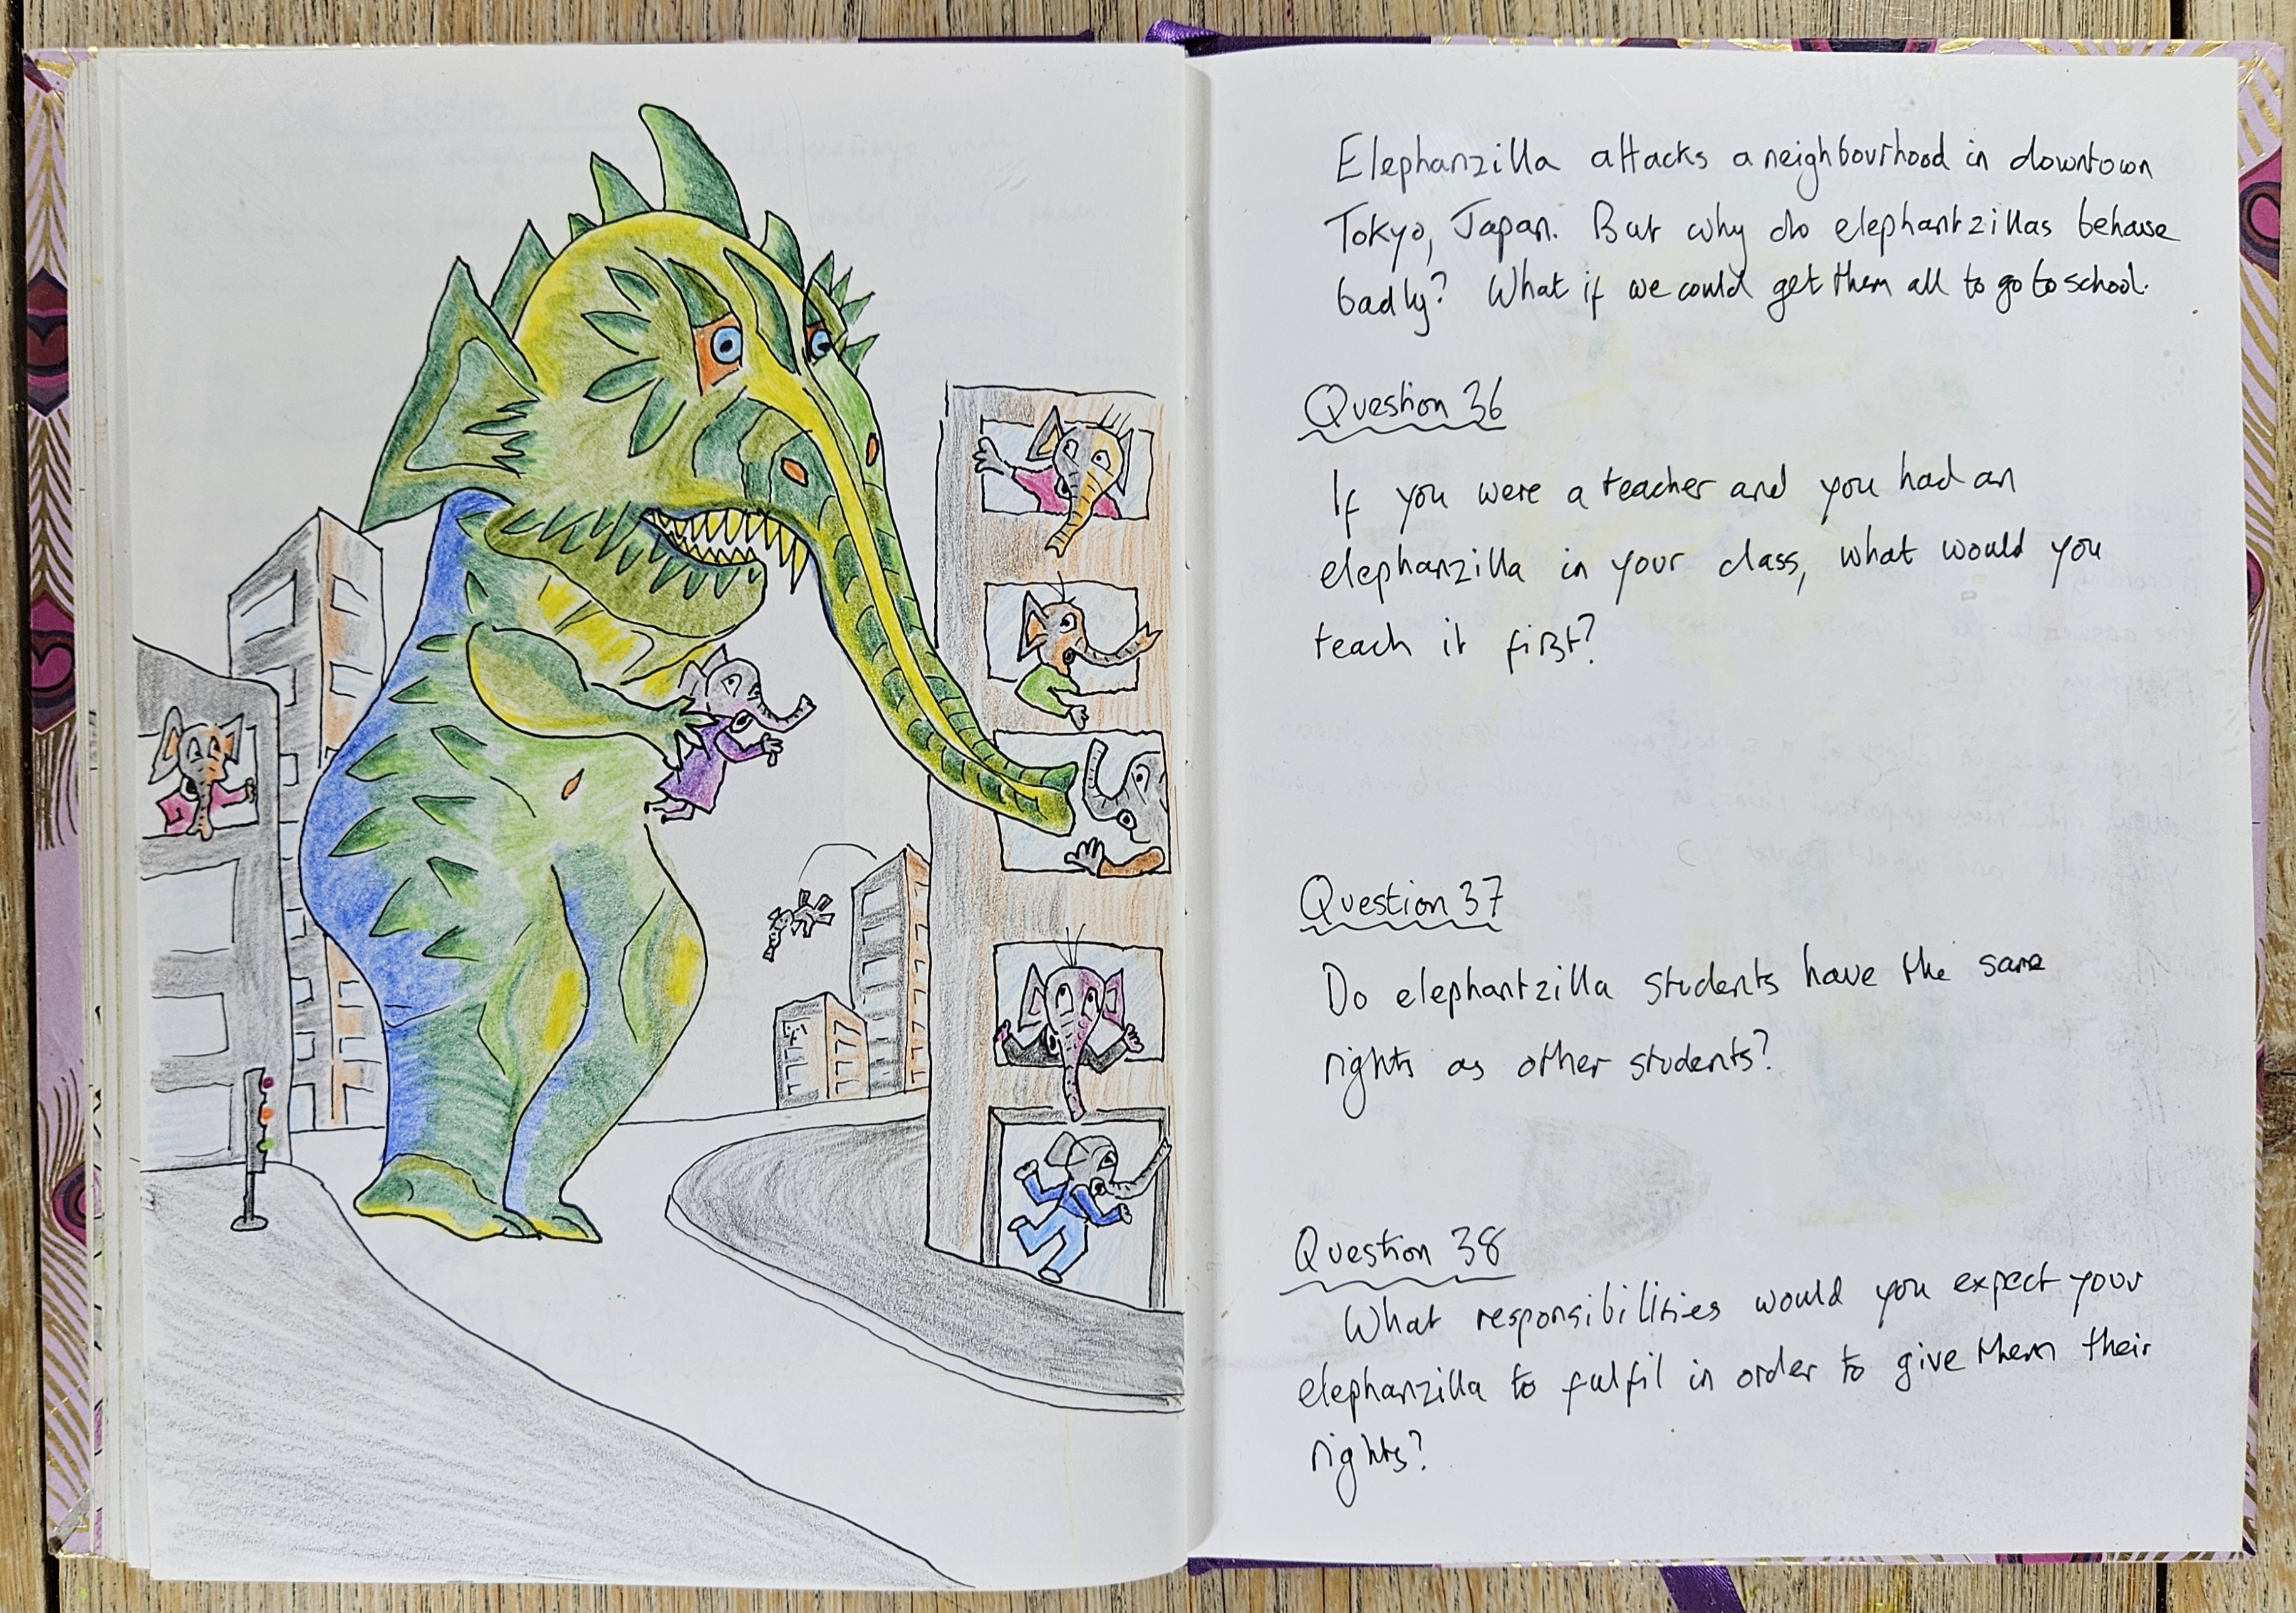 Elephanzilla attacks a neighbourhood in downtown
Tokyo, Japan. But why do elephantzillas behave
badly? What if we could get them all to go to school.
Question 36
If you were a teacher and you had an
elephanzilla in your class, what would you
teach it first?
Question 37
Do elephantzilla students have the same
rights as other students?
Question 38
What responsibilities would you expect your
elephanzilla to fulfil in order to give them their
rights?